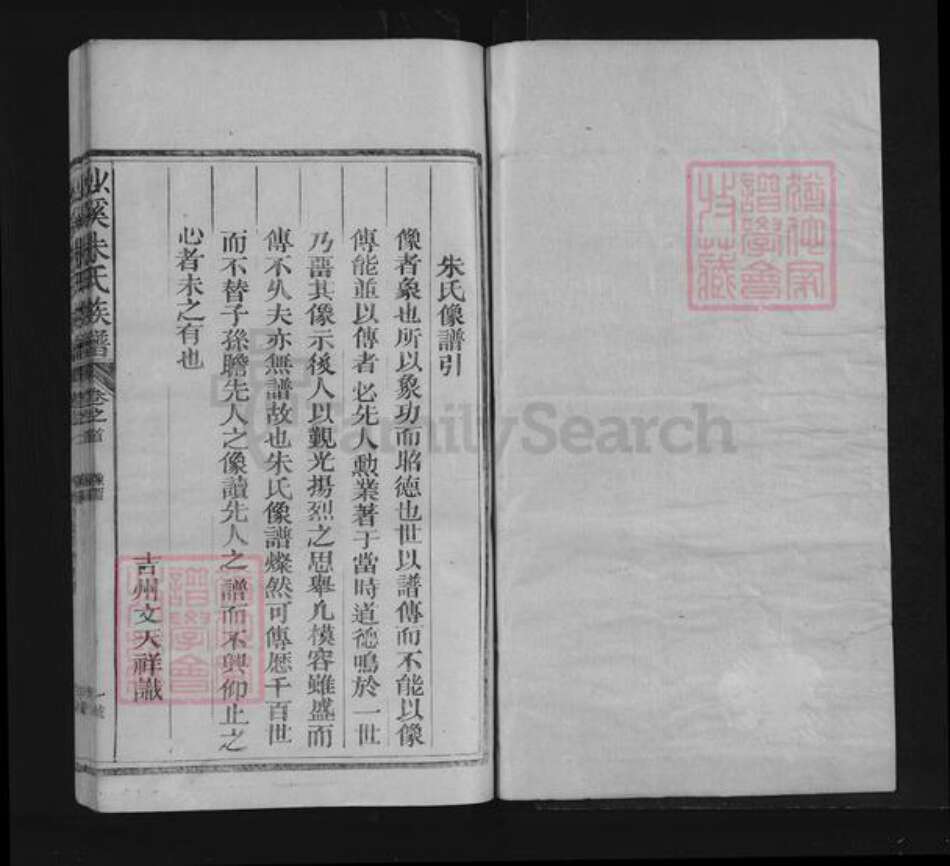 朱氏像譜引
像者象也所以象功而昭德也世以譜傳而不能以像
傳能並以傳者必先人勲業著于當時道德鳴於一世
乃啚其像示後人以觀光揚烈之思舉凡模容雖盛而
傳不久夫亦無譜故也朱氏像譜燦然可傳歷千百世
而不替子孫瞻先人之像讀先人之譜而不興仰止之
心者未之有也
吉州文天祥識
溪朱氏族譜
卷之首
譜學會
收藏
FamilySearch